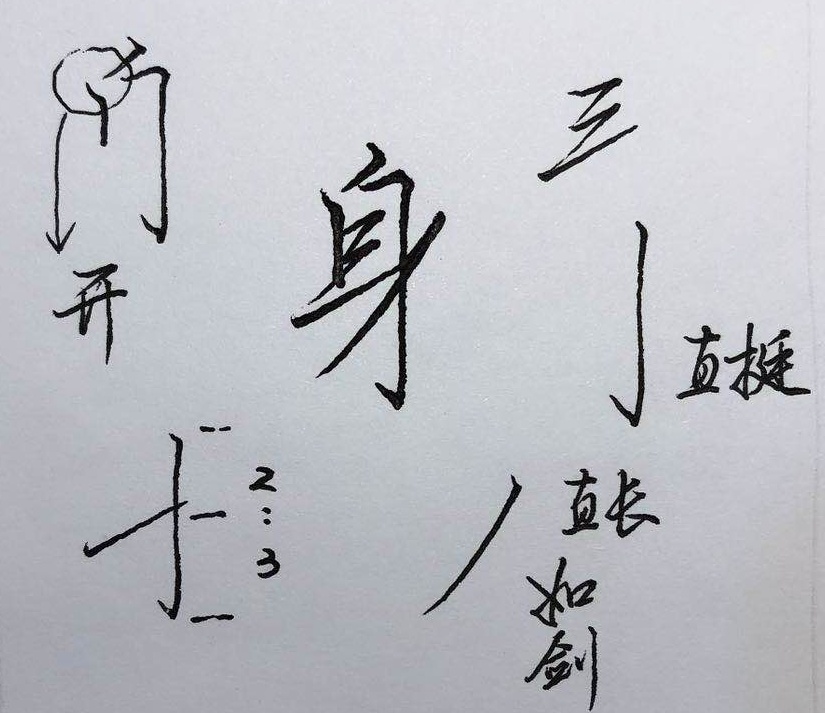 三
身
开
直挺
2
:
3
直长
如
剑